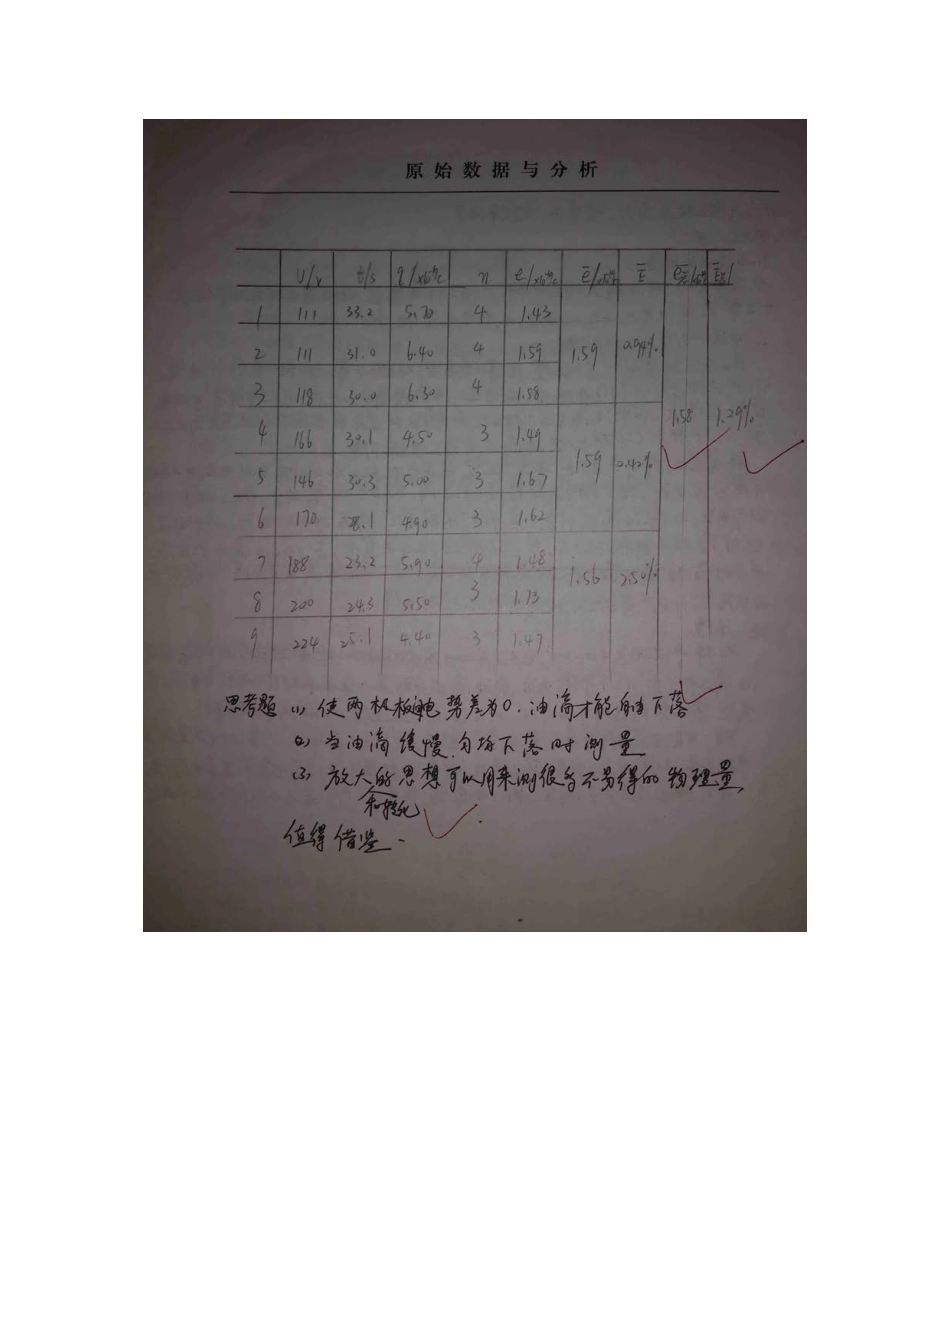 原始数据与分析
U/v t/s q/ n e/ ē/ Ē
1 111 33.2 5.70 4 1.43
2 111 31.0 6.40 4 1.59 1.59 0.94%
3 118 30.0 6.30 4 1.58
1.58 1.29%
4 166 30.1 4.50 3 1.49
5 146 30.3 5.00 3 1.67 1.59 0.42%
6 170 28.1 4.90 3 1.62
7 188 23.2 5.90 4 1.48
8 200 24.3 5.50 3 1.73 1.56 2.50%
9 224 25.1 4.40 3 1.47
思考题 (1) 使两极板电势差为0.油滴才能自由下落
(2) 当油滴缓慢.匀场下落时测量
(3) 放大的思想可以用来测很多不易得的物理量,
和转化
值得借鉴.